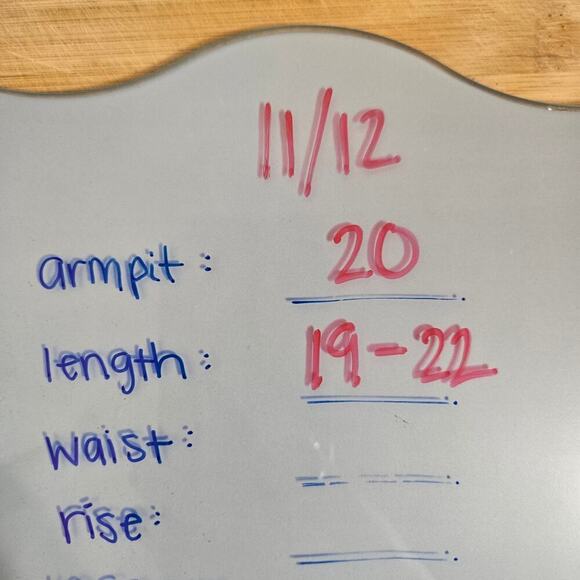 11/12
armpit: 20
length: 19-22
waist:
rise: